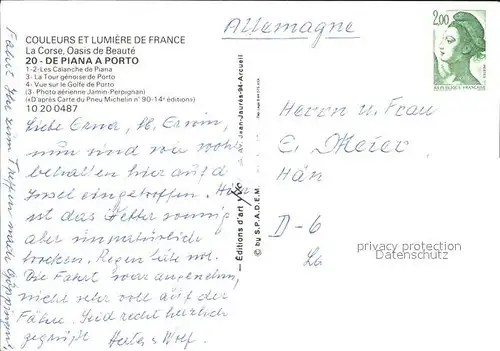 COULEURS ET LUMIÈRE DE FRANCE
La Corse, Oasis de Beauté
20 - DE PIANA A PORTO
1-2-Les Calanche de Piana
3- La Tour génoise de Porto
4- Vue sur le Golfe de Porto
(3- Photo aérienne Janin-Perpignan)
(«D'après Carte du Pneu Michelin n° 90-14e éditions»)
10 20 0487
Liebe Erna, lb. Erwin,
nun sind wir wohl
behalten hier auf d.
Insel eingetroffen. Hier
ist das Wetter sonnig
aber
trocken. Regen täte not.
Die Fahrt war angenehm,
nicht sehr voll auf der
Fähre. Seid recht herzlich
gegrüßt Wolf.
zum Treffen nach Göppingen!
— Editions d'art
Jean-Jaurès-94-Arcueil
© by S.P.A.D.E.M.
Allemagne
2,00
REPUBLIQUE FRANÇAISE
Herrn u. Frau
E. Meier
D-6
privacy protection
AnsichtsKartenDE